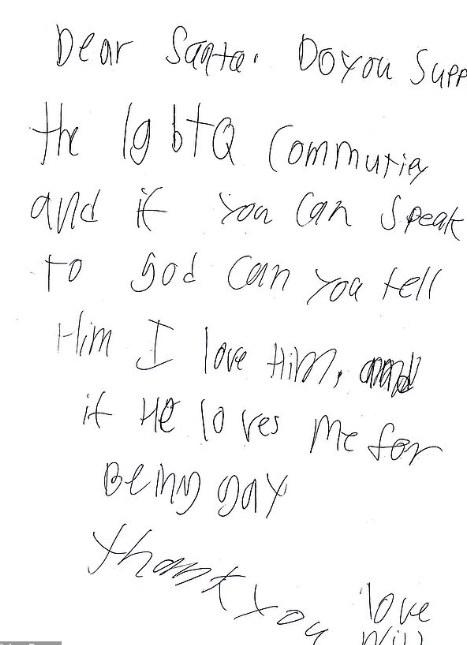 Dear Santa. Do you Supp
the lgbtQ Community
and if you can speak
to god can you tell
Him I love Him, and
if He loves me for
Being gay
thank you
love
Will